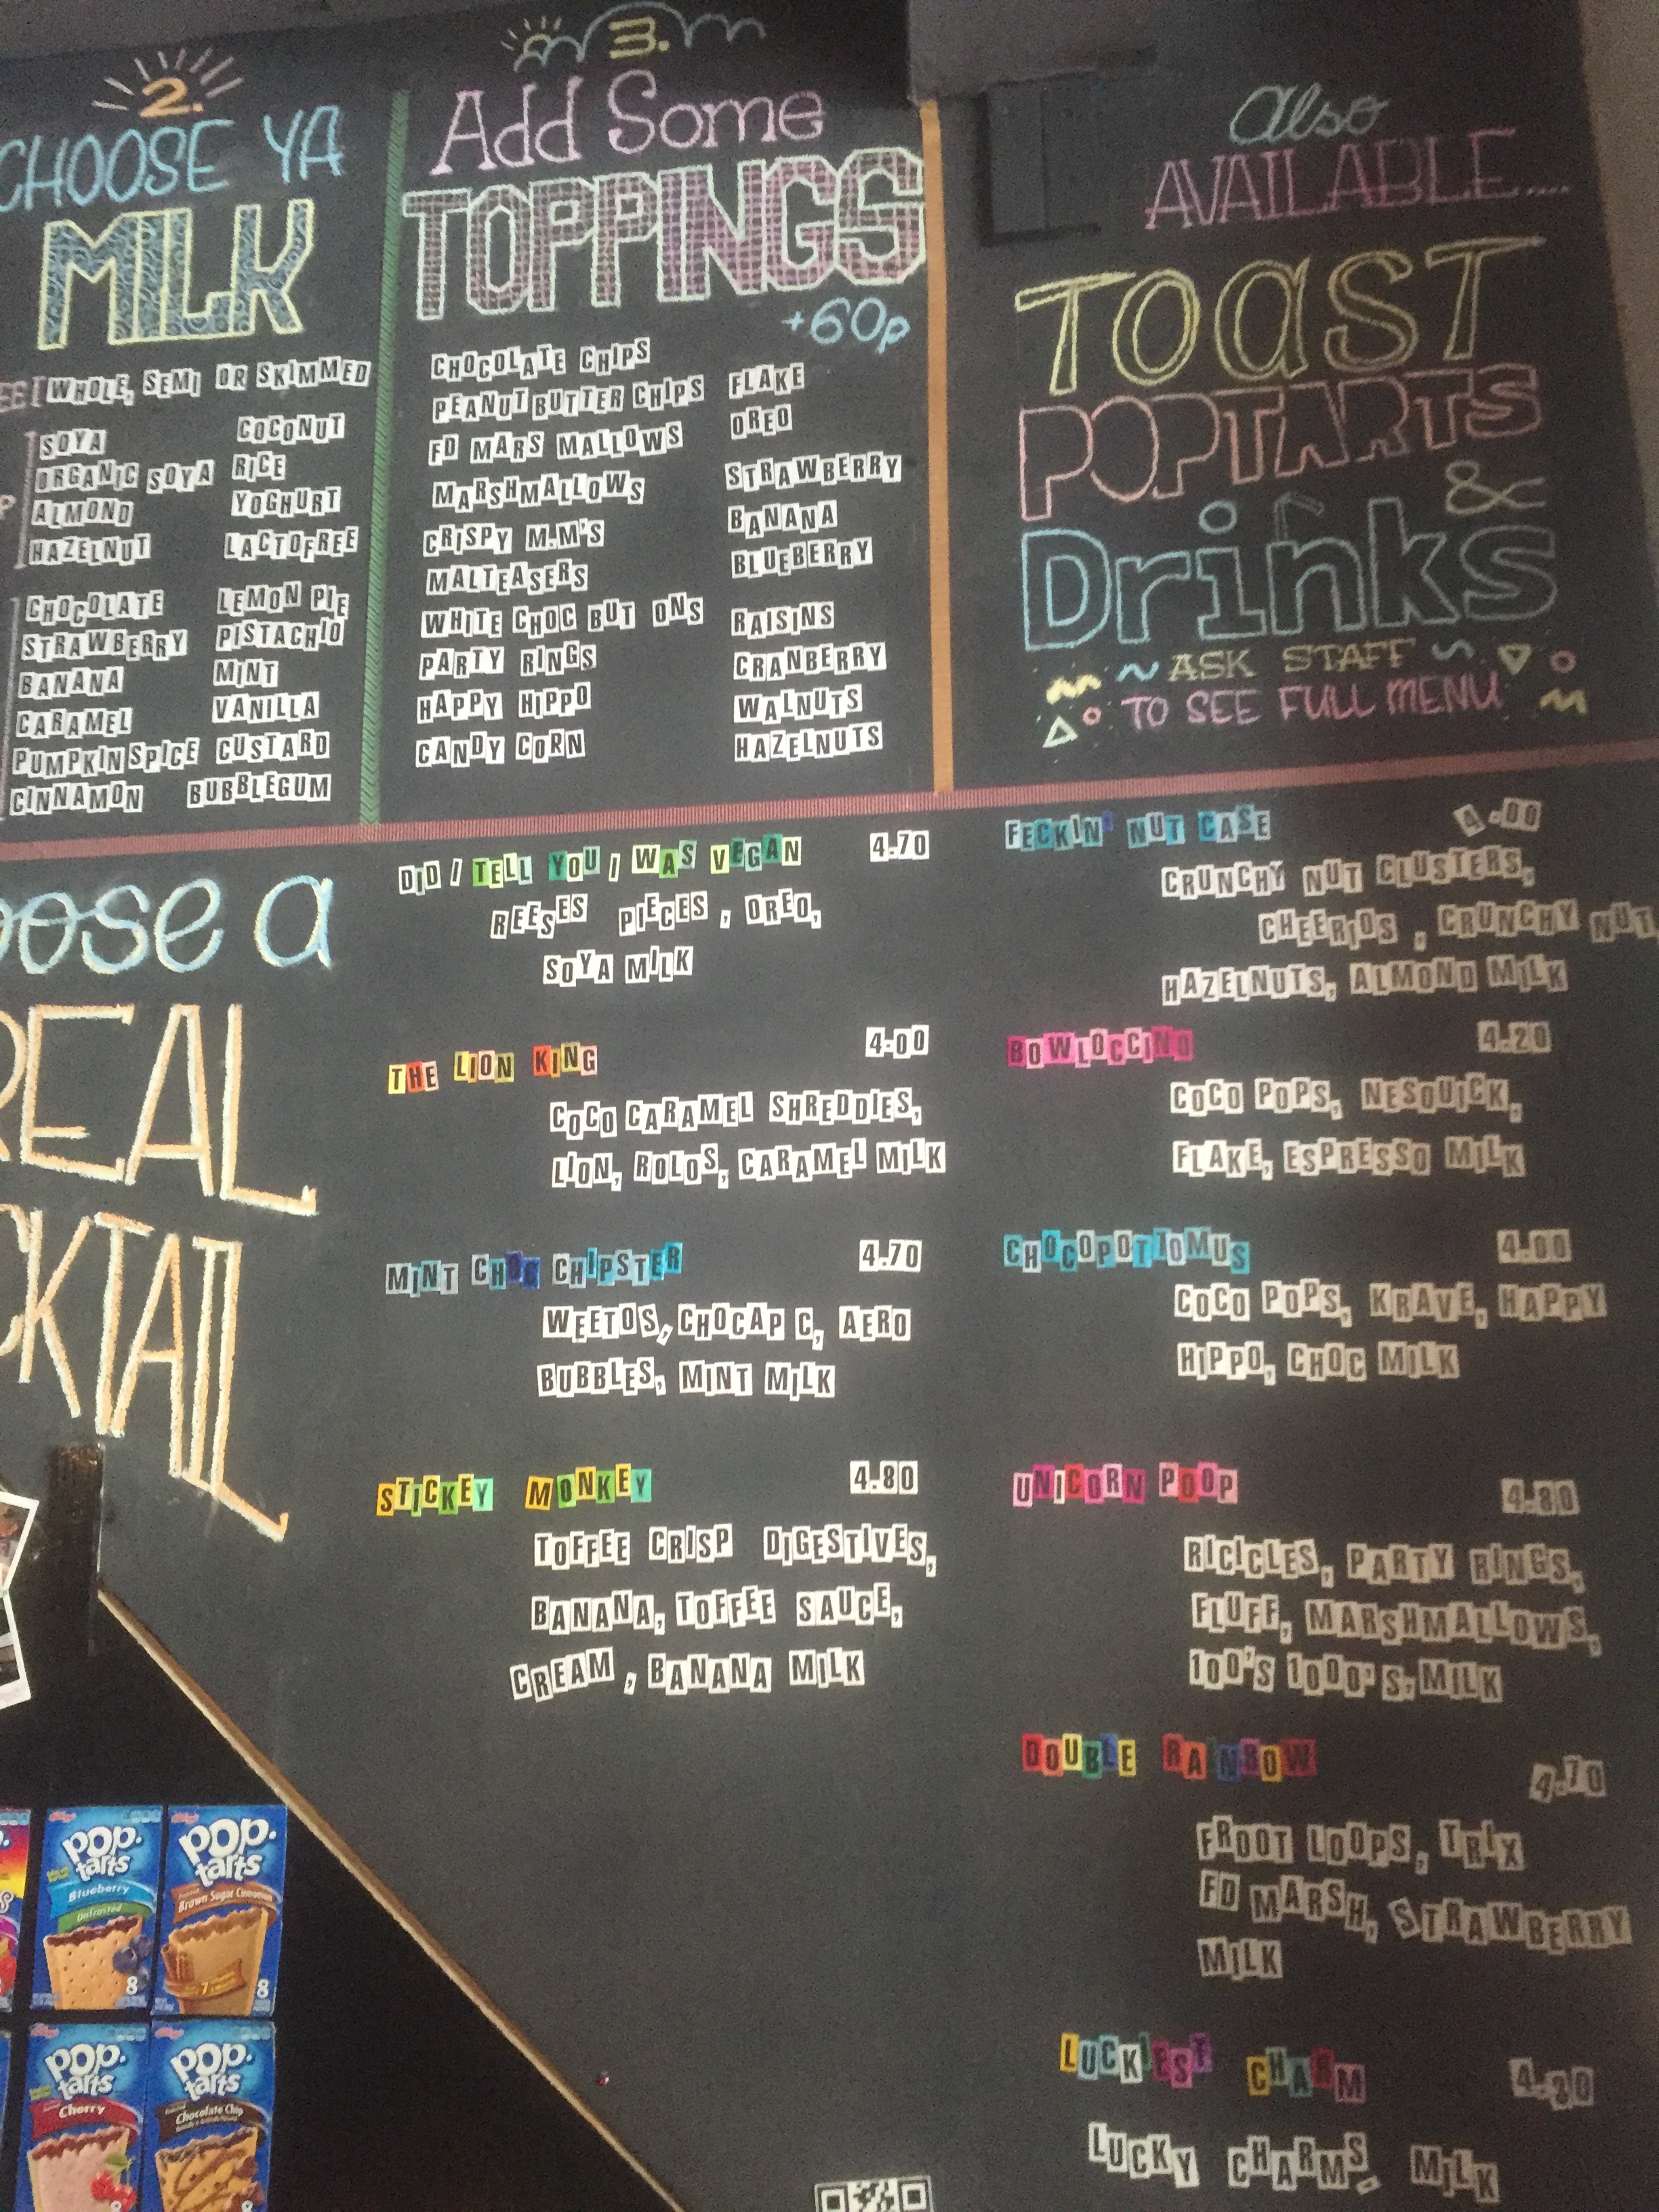 2.
CHOOSE YA
MILK
WHOLE, SEMI OR SKIMMED
SOYA
ORGANIC SOYA
ALMOND
HAZELNUT
COCONUT
RICE
YOGHURT
LACTOFREE
CHOCOLATE
STRAWBERRY
BANANA
CARAMEL
PUMPKIN SPICE
CINNAMON
LEMON PIE
PISTACHIO
MINT
VANILLA
CUSTARD
BUBBLEGUM
3.
Add Some
TOPPINGS
+60p
CHOCOLATE CHIPS
PEANUT BUTTER CHIPS
FD MARS MALLOWS
MARSHMALLOWS
CRISPY M.M'S
MALTEASERS
WHITE CHOC BUT ONS
PARTY RINGS
HAPPY HIPPO
CANDY CORN
FLAKE
OREO
STRAWBERRY
BANANA
BLUEBERRY
RAISINS
CRANBERRY
WALNUTS
HAZELNUTS
Also
AVAILABLE....
TOAST
POPTARTS
&
Drinks
ASK STAFF
TO SEE FULL MENU
oose a
REAL
CKTAIL
DID I TELL YOU I WAS VEGAN 4.70
REESES PIECES, OREO,
SOYA MILK
THE LION KING 4.00
COCO CARAMEL SHREDDIES,
LION, ROLOS, CARAMEL MILK
MINT CHOC CHIPSTER 4.70
WEETOS, CHOCAP C, AERO
BUBBLES, MINT MILK
STICKEY MONKEY 4.80
TOFFEE CRISP DIGESTIVES,
BANANA, TOFFEE SAUCE,
CREAM, BANANA MILK
FECKIN' NUT CASE 4.00
CRUNCHY NUT CLUSTERS,
CHEERIOS, CRUNCHY NUT
HAZELNUTS, ALMOND MILK
BOWLOCCINO 4.20
COCO POPS, NESQUICK,
FLAKE, ESPRESSO MILK
CHOCOPOTTOMUS 4.00
COCO POPS, KRAVE, HAPPY
HIPPO, CHOC MILK
UNICORN POOP 4.80
RICICLES, PARTY RINGS,
FLUFF, MARSHMALLOWS,
100'S 1000'S, MILK
DOUBLE RAINBOW 4.70
FROOT LOOPS, TRIX
FD MARSH, STRAWBERRY
MILK
LUCKIEST CHARM 4.30
LUCKY CHARMS, MILK
pop.
tarts
Blueberry
Unfrosted
8
pop.
tarts
Brown Sugar Cinnamon
8
pop.
tarts
Cherry
pop.
tarts
Chocolate Chip